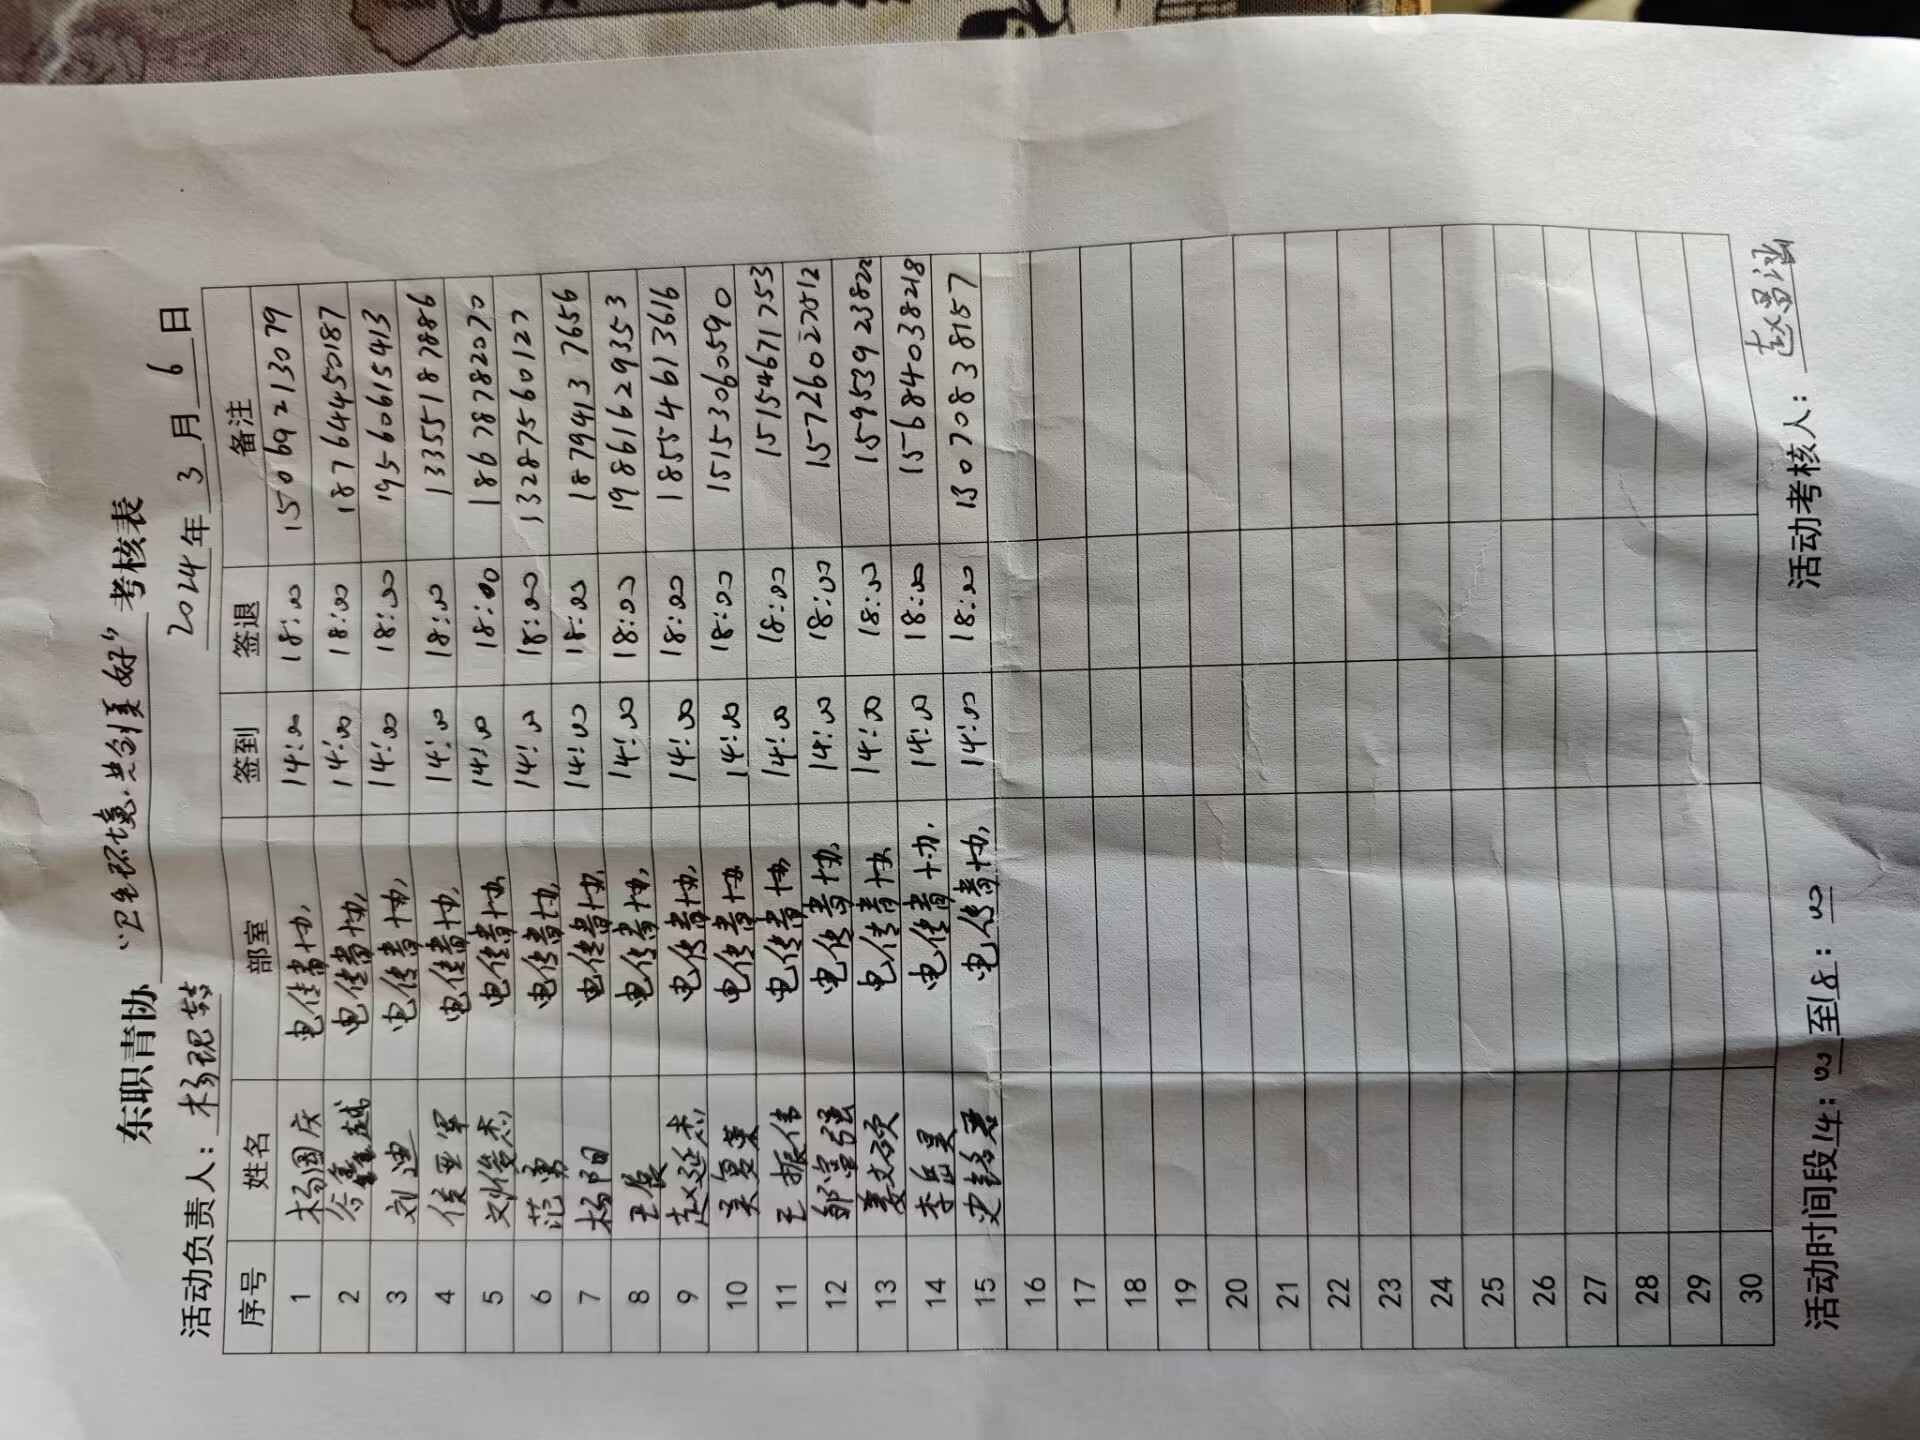 东职青协 “卫生环境,共创美好” 考核表
2024年 3 月 6 日
活动负责人：杨现喆
序号 姓名 部室 签到 签退 备注
1 杨国庆 电传青协 14:00 18:00 15069213079
2 谷鑫越 电传青协 14:00 18:00 18764450187
3 刘迪 电传青协 14:00 18:00 19560615413
4 侯亚军 电传青协 14:00 18:00 13355187886
5 刘俊杰 电传青协 14:00 18:00 18678782070
6 范勇 电传青协 14:00 18:00 13287560127
7 杨阳 电传青协 14:00 18:00 18794137656
8 王晨 电传青协 14:00 18:00 19861629353
9 赵延杰 电传青协 14:00 18:00 18554613616
10 吴复荣 电传青协 14:00 18:00 15153060590
11 王振伟 电传青协 14:00 18:00 15154671753
12 邹富强 电传青协 14:00 18:00 15726027512
13 姜文硕 电传青协 14:00 18:00 15953923822
14 李岳昊 电传青协 14:00 18:00 15684038218
15 电传青协 14:00 18:00 13070838157
16
17
18
19
20
21
22
23
24
25
26
27
28
29
30
活动时间段14：00至18：00 活动考核人：赵昱涵